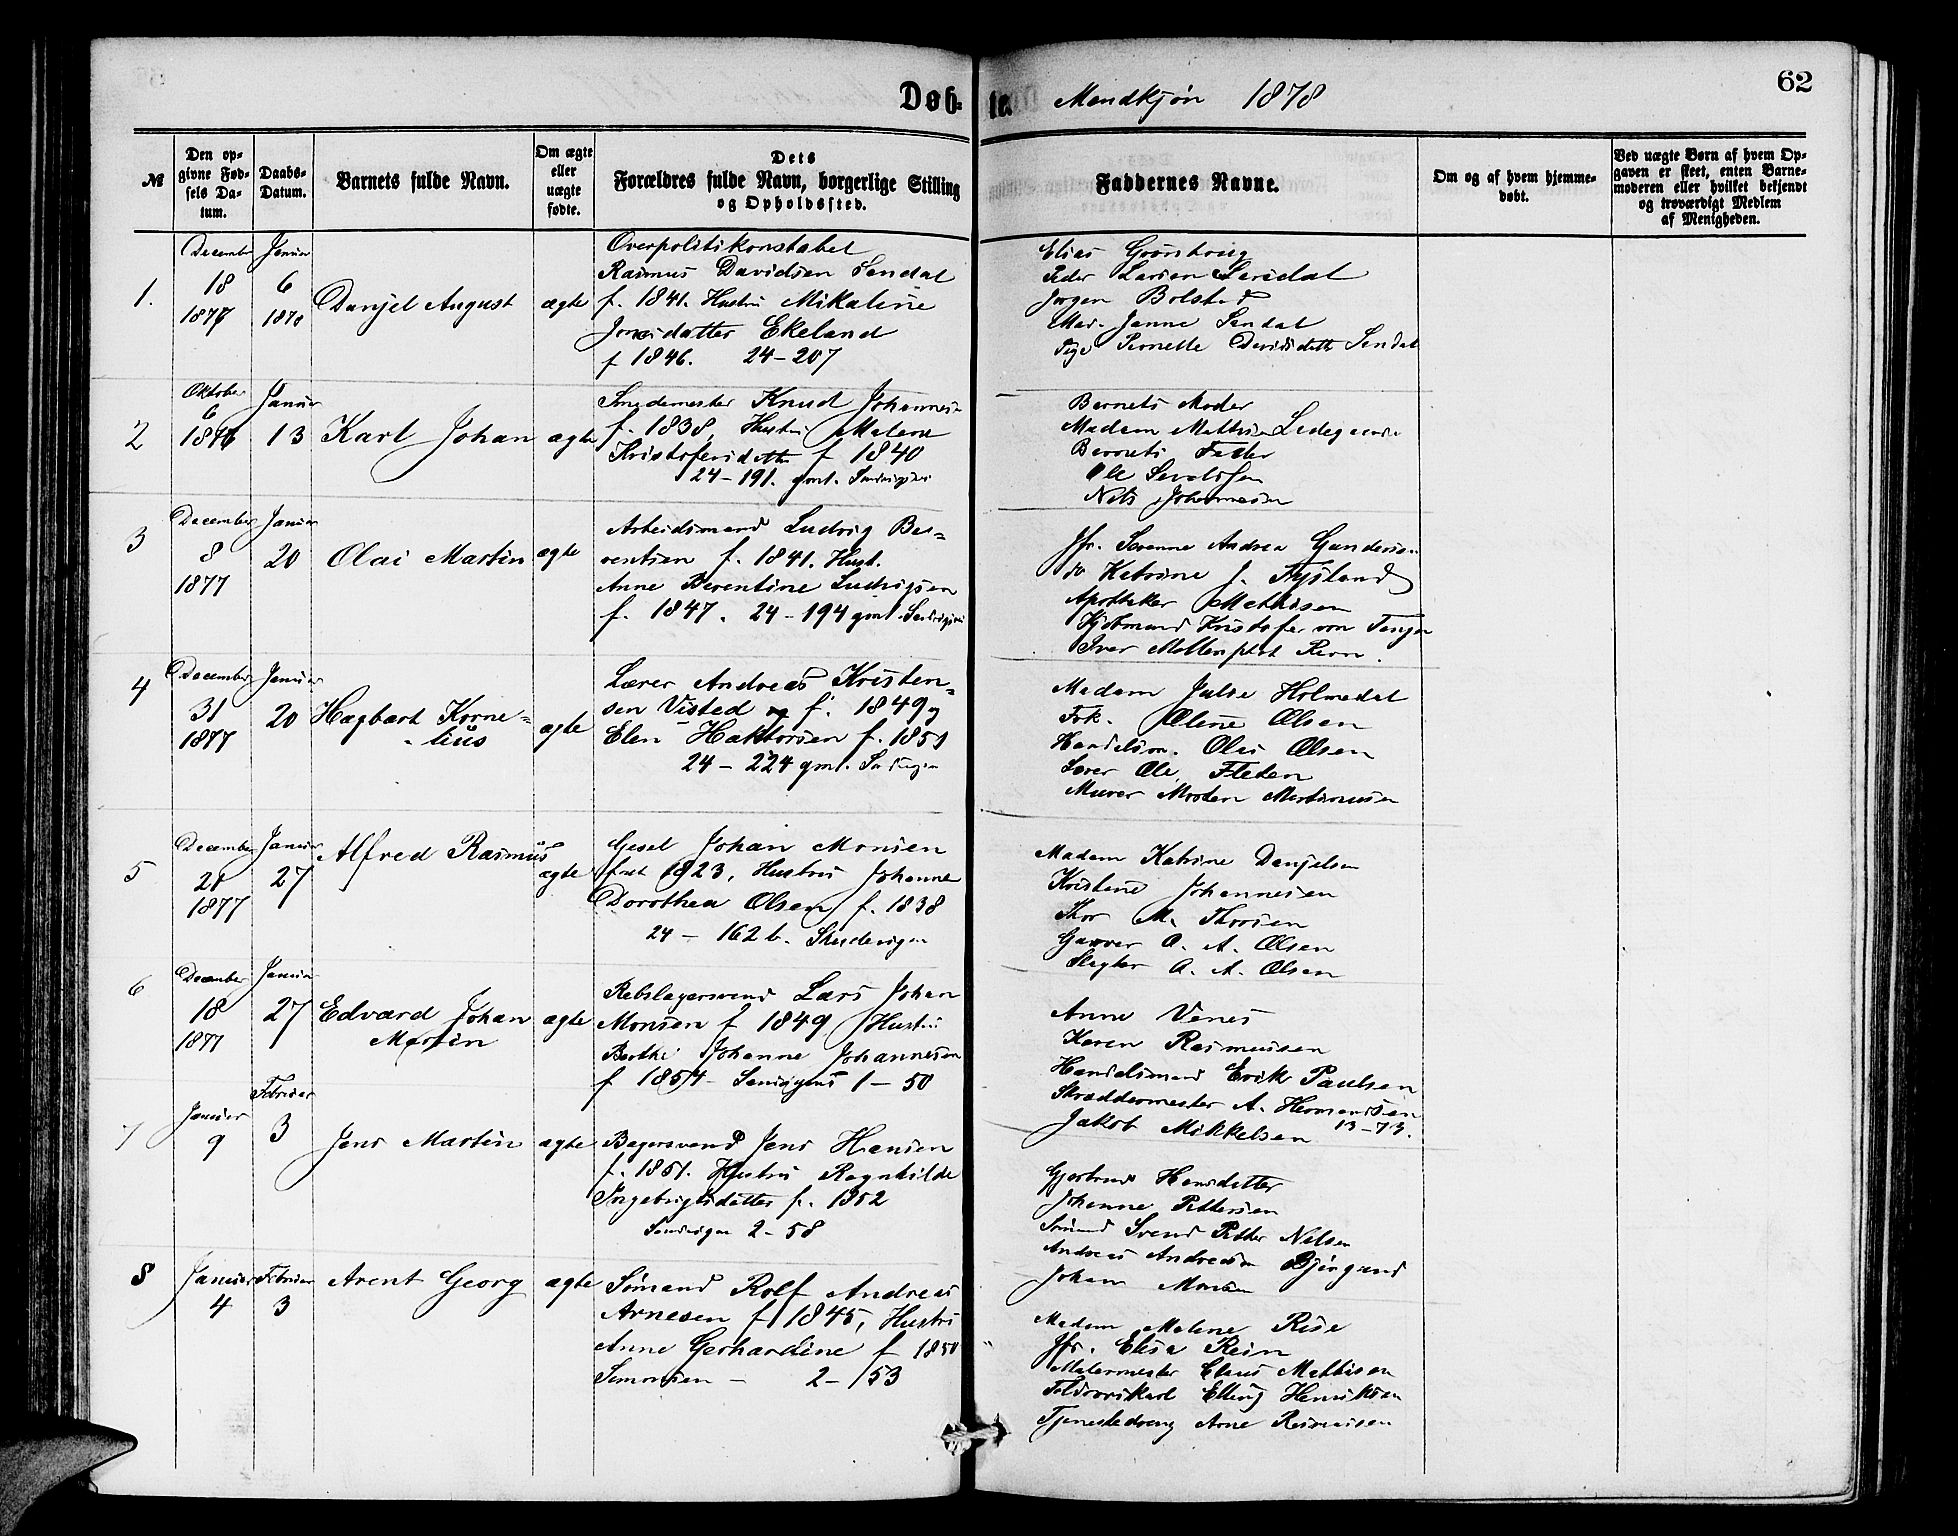 Døb-
te.
Mandkjøn 1878
62
№
Den op-
givne Fød-
sels Da-
tum.
Daabs-
Datum.
Barnets fulde Navn.
Om ægte
eller
uægte
fødte.
Dets
Forældres fulde Navn, borgerlige Stilling
og Opholdssted.
Faddernes Navne.
Om og af hvem hjemme-
døbt.
Ved uægte Børn af hvem Op-
gaven er skeet, enten Barne-
moderen eller hvilket bekjendt
og troværdigt Medlem
af Menigheden.
1.
December
18
1877
Januar
6
1878
Danjel August
ægte
Overpolitikonstabel
Rasmus Davidsen Sendal
f. 1841. Hustru Mikaline
Jonasdatter Ekeland
f 1846. 24-207
Elias Grønhoug
Peder Larsen Sendal
Jørgen Bolstad
Mad. Janne Sendal
Pige Pernelle Davidsdatter Sendal
2
Oktober
6
1876
Januar
13
Karl Johan
ægte
Smedemester Knud Johannes
f. 1838, Hustru Malene
Kristofersdatter f 1840
24-191. gml. Sandvigsvei
Barnets Moder
Madam Mathea Ladegaard
Barnets Fader
Ole
Nels Johannesen
3
December
8
1877
Januar
20
Olai Martin
ægte
Arbeidsmand Ludvig Be-
rentsen f. 1841. Hust.
Anne Berentine Ludvigsen
f. 1847. 24-194 gml. Sandvigsvei
Jfr. Severine Andrea Gunders
do Katrine J. Fysland
Apotheker Mathisen
Kjøbmand Kristofer von Tangen
Iver
4
December
31
1877
Januar
20
Hagbart Korne-
-lius
ægte
Lærer Andreas Kristen-
sen Visted og f. 1849 og
Elen Haktorsen f. 1851
24-224 gml. Sandvigen
Madam Julie Holmedal
Frk. Oline Olsen
Handelsm. Olai Olsen
Lærer Ole Fleten
Murer Morten Martinusen
5
December
21
1877
Januar
27
Alfred Rasmus
ægte
Gesel Johan Monsen
født 1823, Hustru Johanne
Dorothea Olsen f. 1838
24-162 b. Skudevigen
Madam Katrine Danjelsen
Kristine Johannesen
Thor M. Thorsen
Garver O. A. Olsen
Slagter A. A. Olsen
6
December
18
1877
Januar
27
Edvard Johan
Martin
ægte
Rebslagersvend Lars Johan
Monsen f 1849 Hustru
Berthe Johanne Johannesen
f 1854 Sandvigens 1-50
Anne Venes
Karen Rasmussen
Handelsmand Erik Paulsen
Skræddermester A. Hermandsen
Jakob Mikkelsen 13-73.
7
Januar
9
Februar
3
Jens Martin
ægte
Bagersvend Jens Hansen
f. 1851. Hustru Ragnhilde
Ingebrigtsdatter f. 1852
Sandvigen 2-58
Gjertrud Hansdatter
Johanne Pettersen
Sømand Svend Petter Nilsen
Andreas Andreasen Bjørgand
Johan Monsen
8
Januar
4
Februar
3
Arent Georg
ægte
Sømand Rolf Andreas
Arnesen f 1845, Hustru
Anne Gerhardine f 1850
Simonsen - 2-153
Madam Malene Rise
Jfr. Elisa Rein
Malermester Claus Mathisen
Toldvoerskarl Elling Henriksen
Tjenestedreng Arne Rasmusen